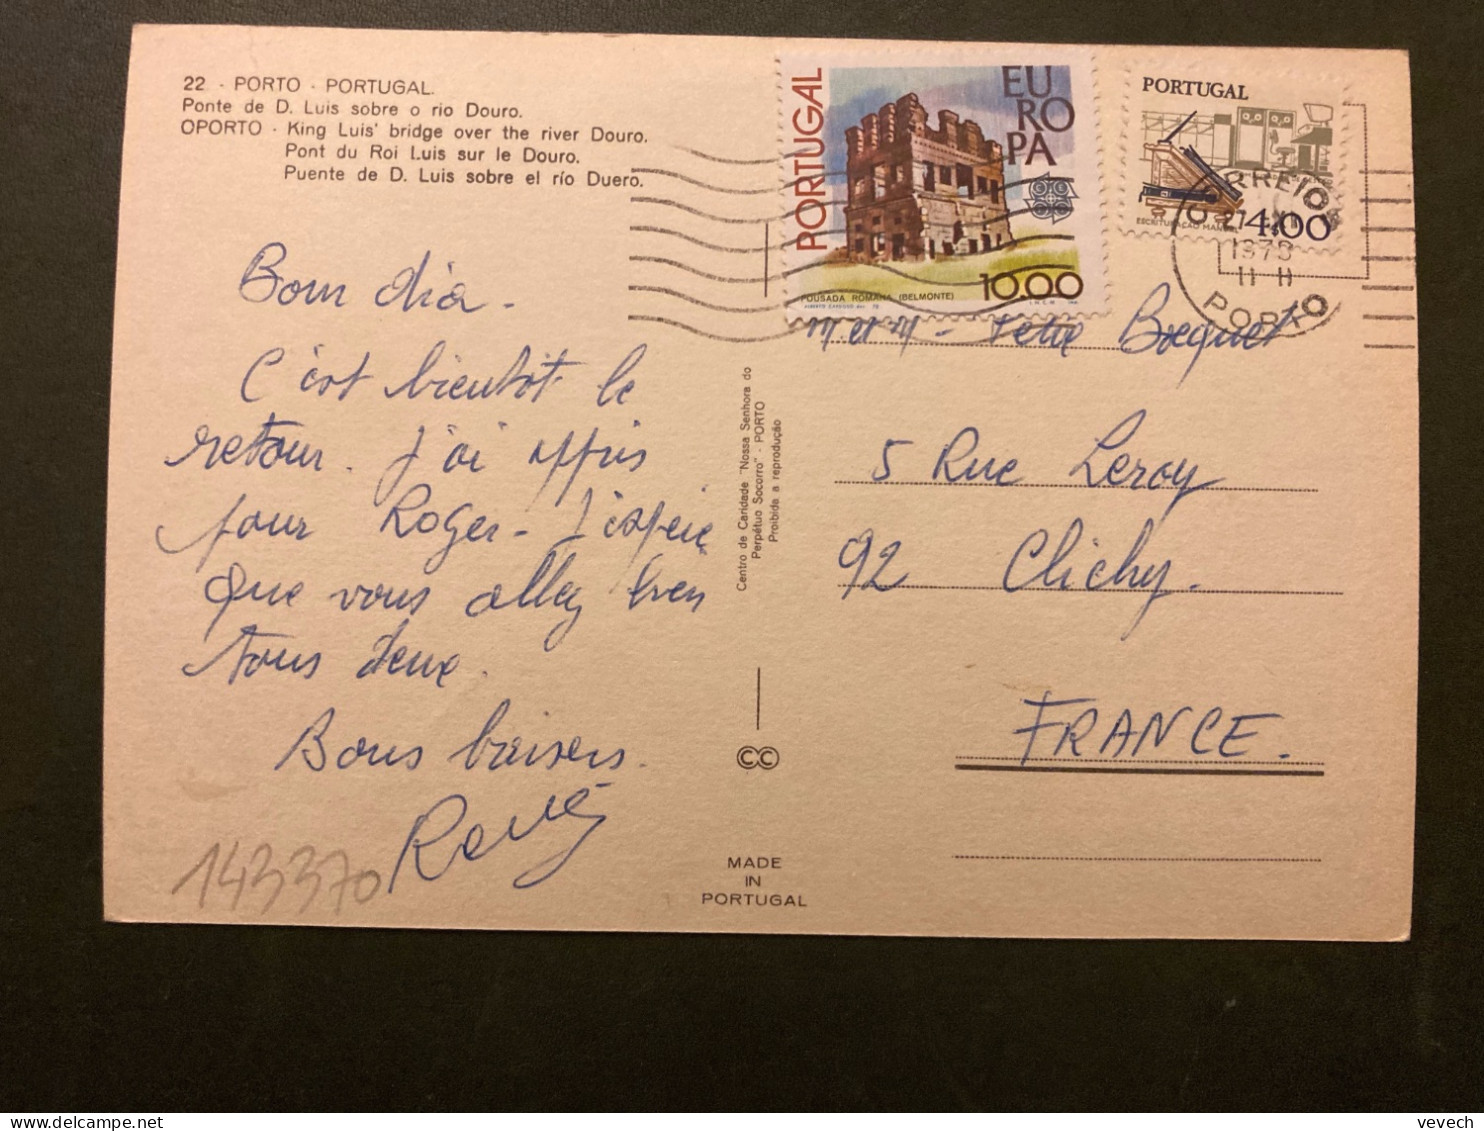 22 - PORTO - PORTUGAL.
Ponte de D. Luis sobre o rio Douro.
OPORTO - King Luis' bridge over the river Douro.
Pont du Roi Luis sur le Douro.
Puente de D. Luis sobre el río Duero.
Bom dia -
C'est bientôt le
retour. J'ai appris
pour Roger - J'espère
que vous allez bien
tous deux.
Bons baisers.
René
143370
Centro de Caridade "Nossa Senhora do
Perpétuo Socorro" - PORTO
Proibida a reprodução
CC
MADE
IN
PORTUGAL
PORTUGAL
EU
RO
PA
POUSADA ROMANA (BELMONTE)
10.00
PORTUGAL
ESCRITURAÇÃO
4.00
CORREIOS
27 XI
1978
PORTO
M et M -
5 Rue Leroy
92 Clichy.
FRANCE.
vevech